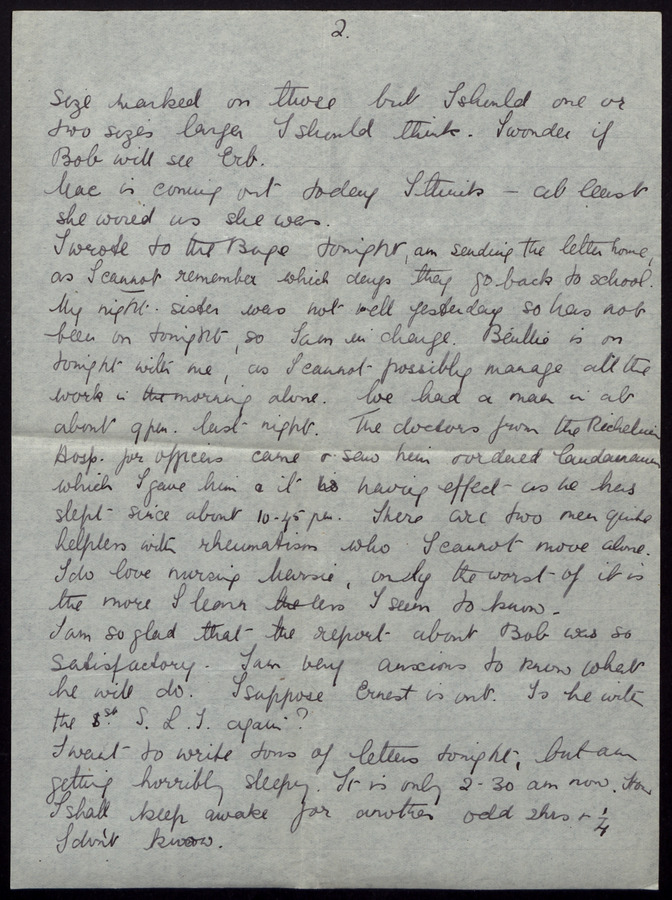 2.
size marked on those but I should one or
two sizes larger I should think. I wonder if
Bob will see Erb.
Mac is coming out today I think – at least
she wired us she was.
I wrote to the Bage tonight, am sending the letter home,
as I cannot remember which days they go back to school.
My night-sister was not well yesterday so has not
been on tonight, so I am in charge. Beullie is on
tonight with me, as I cannot possibly manage all the
work in the morning alone. We had a man in at
about 9 pm. last night. The doctors from the Richelieu
Hosp. for officers came & saw him & ordered laudanum
which I gave him & it is having effect as he has
slept since about 10-45 pm. There are two men quite
helpless with rheumatism who I cannot move alone.
I do love nursing Mersie, only the worst of it is
the more I learn the less I seem to know.
I am so glad that the report about Bob was so
satisfactory. I am very anxious to know what
he will do. I suppose Ernest is out. Is he with
the 1st S. L. I. again?
I want to write tons of letters tonight, but am
getting horribly sleepy. It is only 2-30 am now. How
I shall keep awake for another odd 2hrs & 1/4
I don't know.